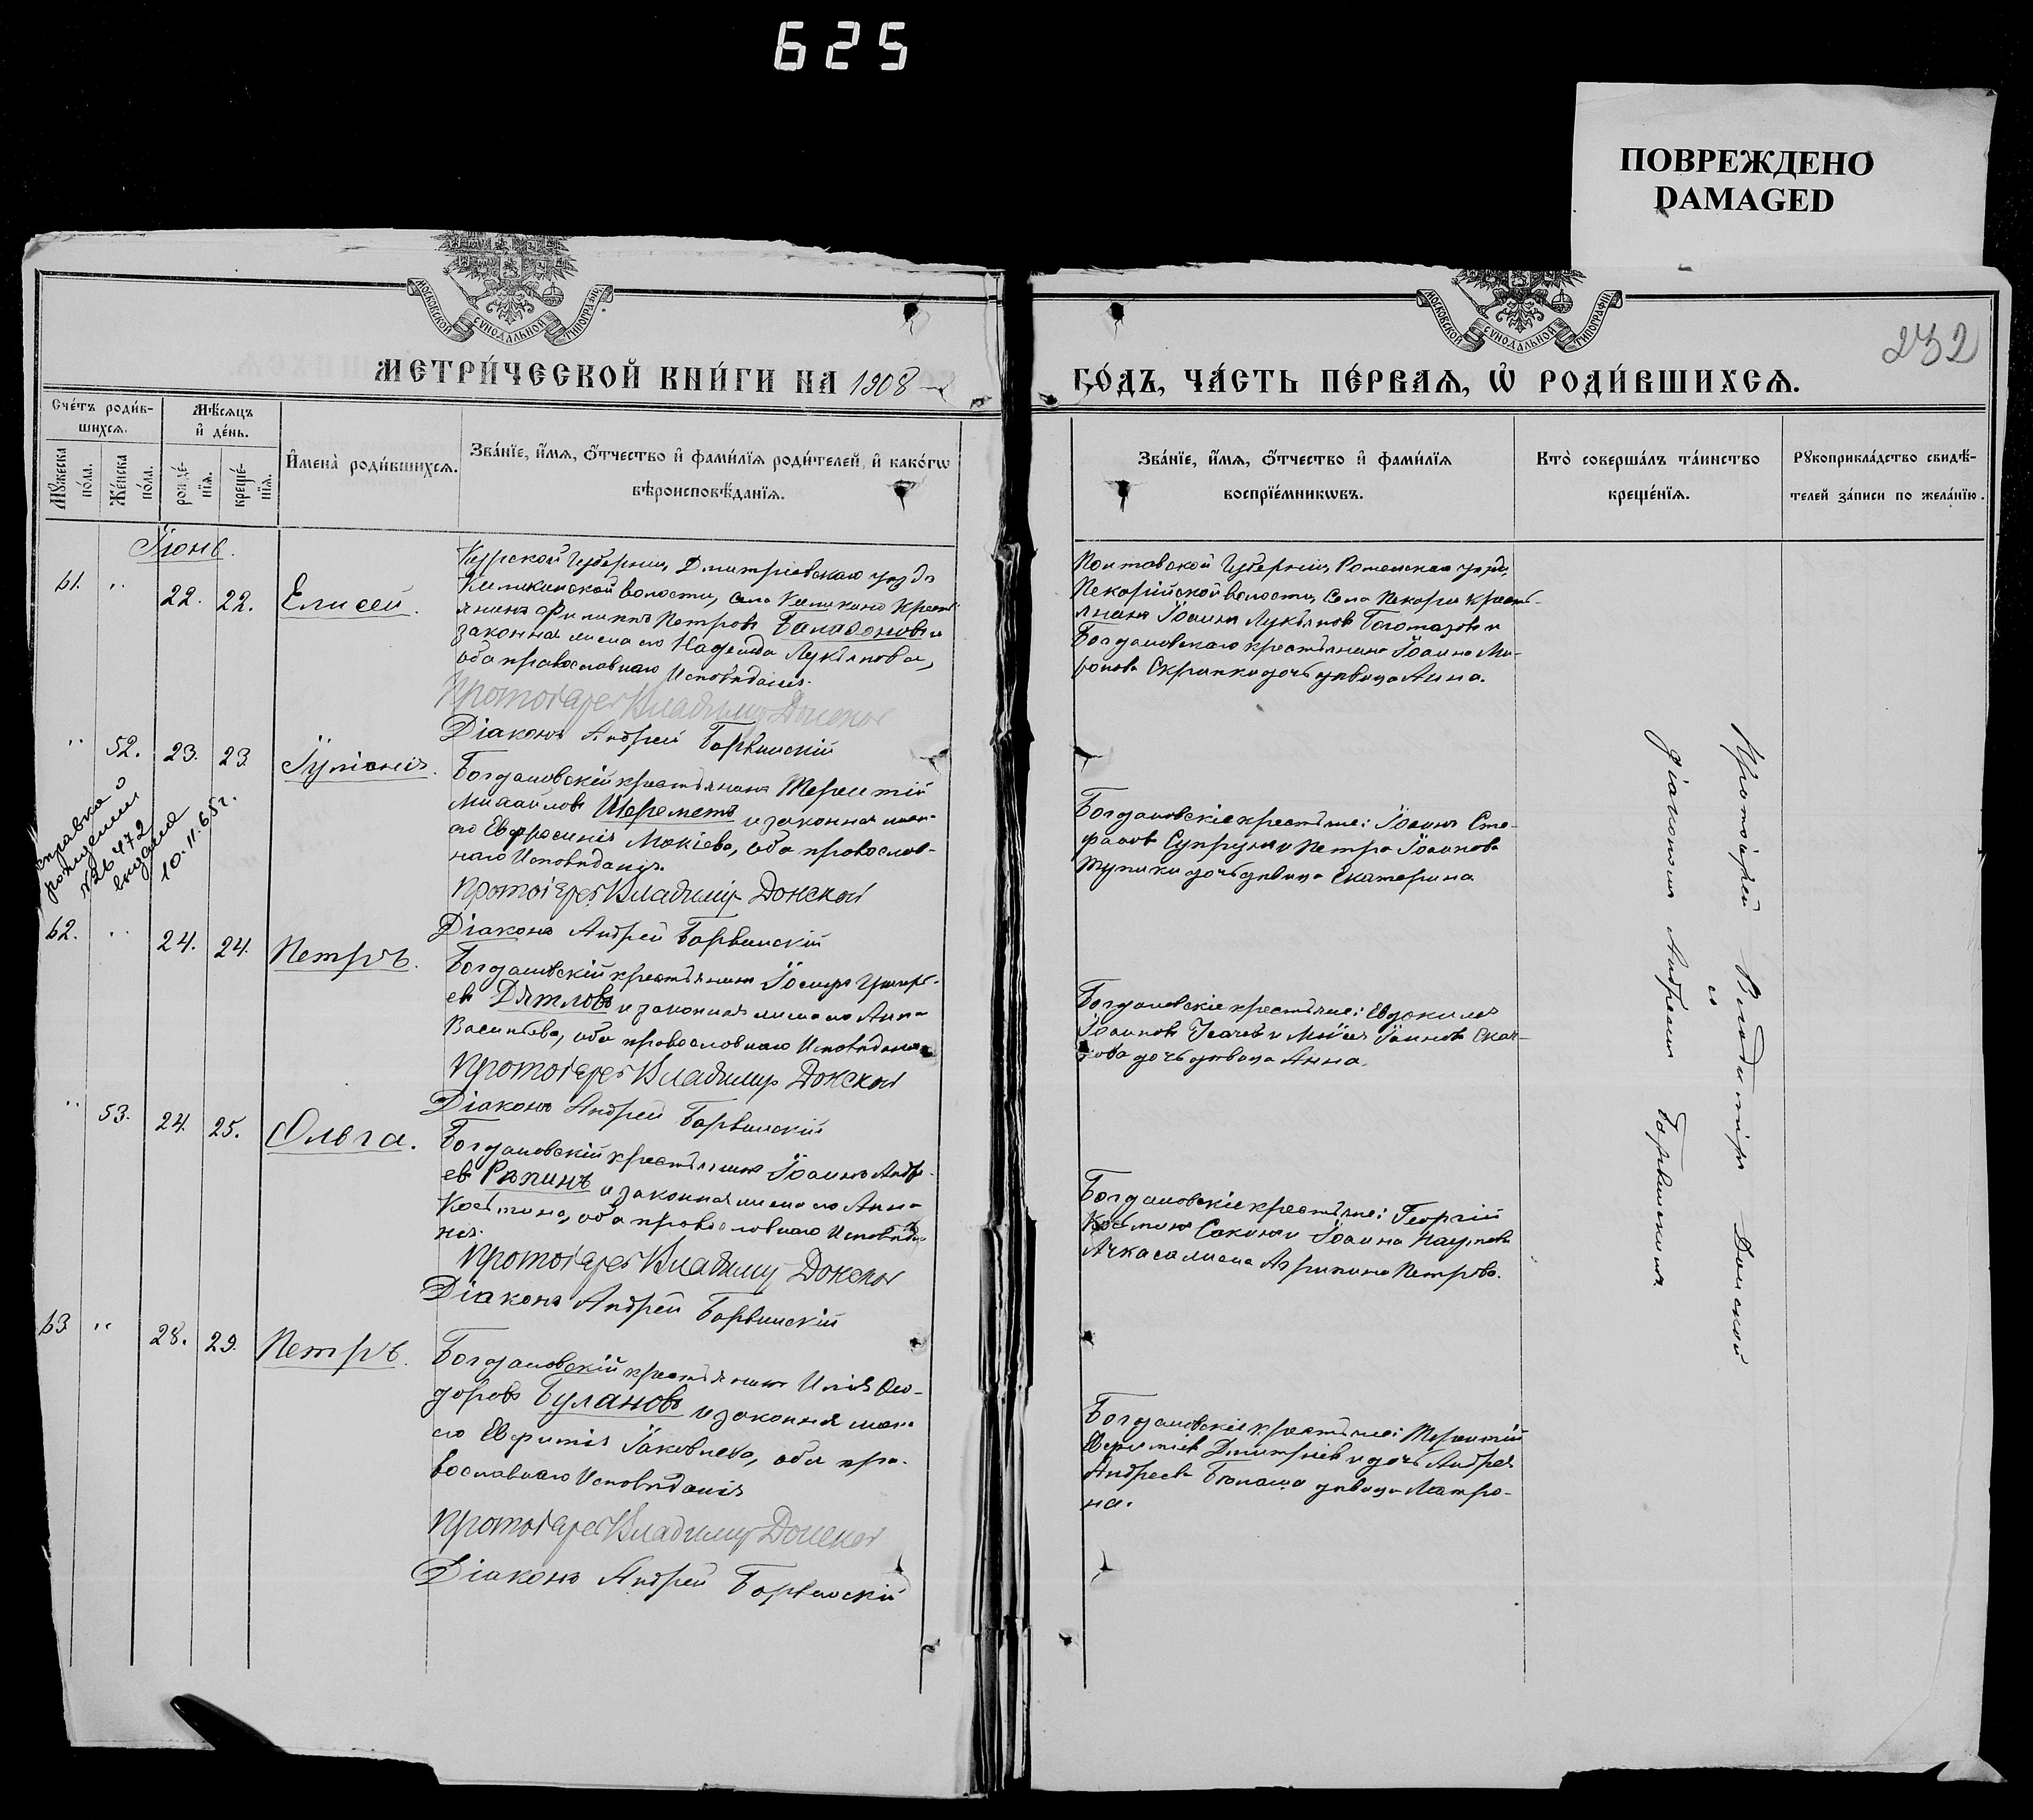 625
ПОВРЕЖДЕНО
DAMAGED
МОСКОВСКОЙ СѴНОДАЛЬНОЙ ТИПОГРАФІИ
МОСКОВСКОЙ СѴНОДАЛЬНОЙ ТИПОГРАФІИ
232
МЕТРИ́ЧЕСКОЙ КНИ́ГИ НА 1908
ГО́ДЪ, ЧА́СТЬ ПЕ́РВАѦ, Ѡ҆ РОДИ́ВШИХСѦ.
Сче́тъ роди́в-
шихсѧ.
Мꙋ́жеска по́ла.
Же́нска по́ла.
Мѣ́сѧцъ
и҆ де́нь.
рожде́-
нїѧ.
креще́-
нїѧ.
И҆мена̀ роди́вшихсѧ.
Зва́нїе, и҆́мѧ, ѻ҆́тчество и҆ фами́лїѧ роди́телей, и҆ како́гѡ
вѣроисповѣ́данїѧ.
Зва́нїе, и҆́мѧ, ѻ҆́тчество и҆ фами́лїѧ
воспрїе́мникѡвъ.
Кто̀ соверша́лъ та́инство
креще́нїѧ.
Рꙋкоприкла́дство свидѣ́-
телей за́писи по жела́нїю.
Іюнь.
61. " 22. 22. Елисей.
Курской Губерніи, Дмитріевскаго уѣзда
волости, села крестья-
янинъ Филиппъ Петровъ и
законная жена его Надежда Лукьянова,
оба православнаго Исповѣданія.
Протоіерей Владиміръ Донской
Діаконъ Андрей Борвинскій
Полтавской Губерніи, Роменскаго уѣзда,
волости, Села крестья-
янинъ Іоаннъ Лукьяновъ и
Богдановскаго крестьянина Іоанна Ми-
ронова Скрипки дочь дѣвица Анна.
" 52. 23. 23. Іуліанія.
Богдановскій крестьянинъ Терентій
Михайловъ Шереметъ и законная жена
его Евфросинія Мокіева, оба православ-
наго Исповѣданія.
Протоіерей Владиміръ Донской
Діаконъ Андрей Борвинскій
Богдановскіе крестьяне: Іоаннъ Сте-
фановъ Супрунъ и Петра Іоаннова
дочь дѣвица Екатерина
справка о
рождении
№ 26472
выдана
10.11.65г.
62. " 24. 24. Петръ.
Богдановскій крестьянинъ Іосифъ
евъ Дятловъ и законная жена его Анна
Васильева, оба православнаго Исповѣданія
Протоіерей Владиміръ Донской
Діаконъ Андрей Борвинскій
Богдановскіе крестьяне: Евдокимъ
Іоанновъ и
дочь дѣвица Анна.
" 53. 24. 25. Ольга.
Богдановскій крестьянинъ Іоаннъ Андре-
евъ Рѣпинъ и законная жена его Анна
Косьмина, оба православнаго Исповѣда-
нія.
Протоіерей Владиміръ Донской
Діаконъ Андрей Борвинскій
Богдановскіе крестьяне: Георгій
Косьминъ и Іоанна
жена Агрипина Петрова.
63 " 28. 29. Петръ.
Богдановскій крестьянинъ Илія Ѳео-
доровъ Булановъ и законная жена
его Евфимія Іаковлева, оба пра-
вославнаго Исповѣданія
Протоіерей Владиміръ Донской
Діаконъ Андрей Борвинскій
Богдановскіе крестьяне: Терентій
Евфиміевъ Дмитріевъ и дочь Андрея
Андреева дѣвица Матро-
на.
Протоіерей Владиміръ Донской
и
діакономъ Андреемъ Борвинскимъ.